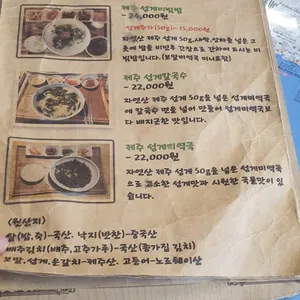 제주 성게비빔밥
- 24,000원
성게추가(50g) - 15,000원
자연산 제주 성게 50g, 새싹, 상추를 넣은 그
릇에 밥을 비빈후 간장으로 간하여 드시는 비
빔밥입니다. (보말미역국 미니포함)
제주 성게칼국수
- 22,000원
자연산 제주 성게 50g을 넣은 성게미역국
에 칼국수 면을 넣어 만들어 성게미역국보
다 배지근한 맛입니다.
제주 성게미역국
- 22,000원
자연산 제주 성게 50g을 넣은 성게미역국
으로 성게맛과 시원한 국물맛이 있
습니다.
<원산지>
쌀(밥,죽)-국산. 낙지(반찬)-중국산
배추김치(배추,고추가루)-국산(종가집 김치)
보말, 성게, 은갈치-제주산. 고등어-노르웨이산